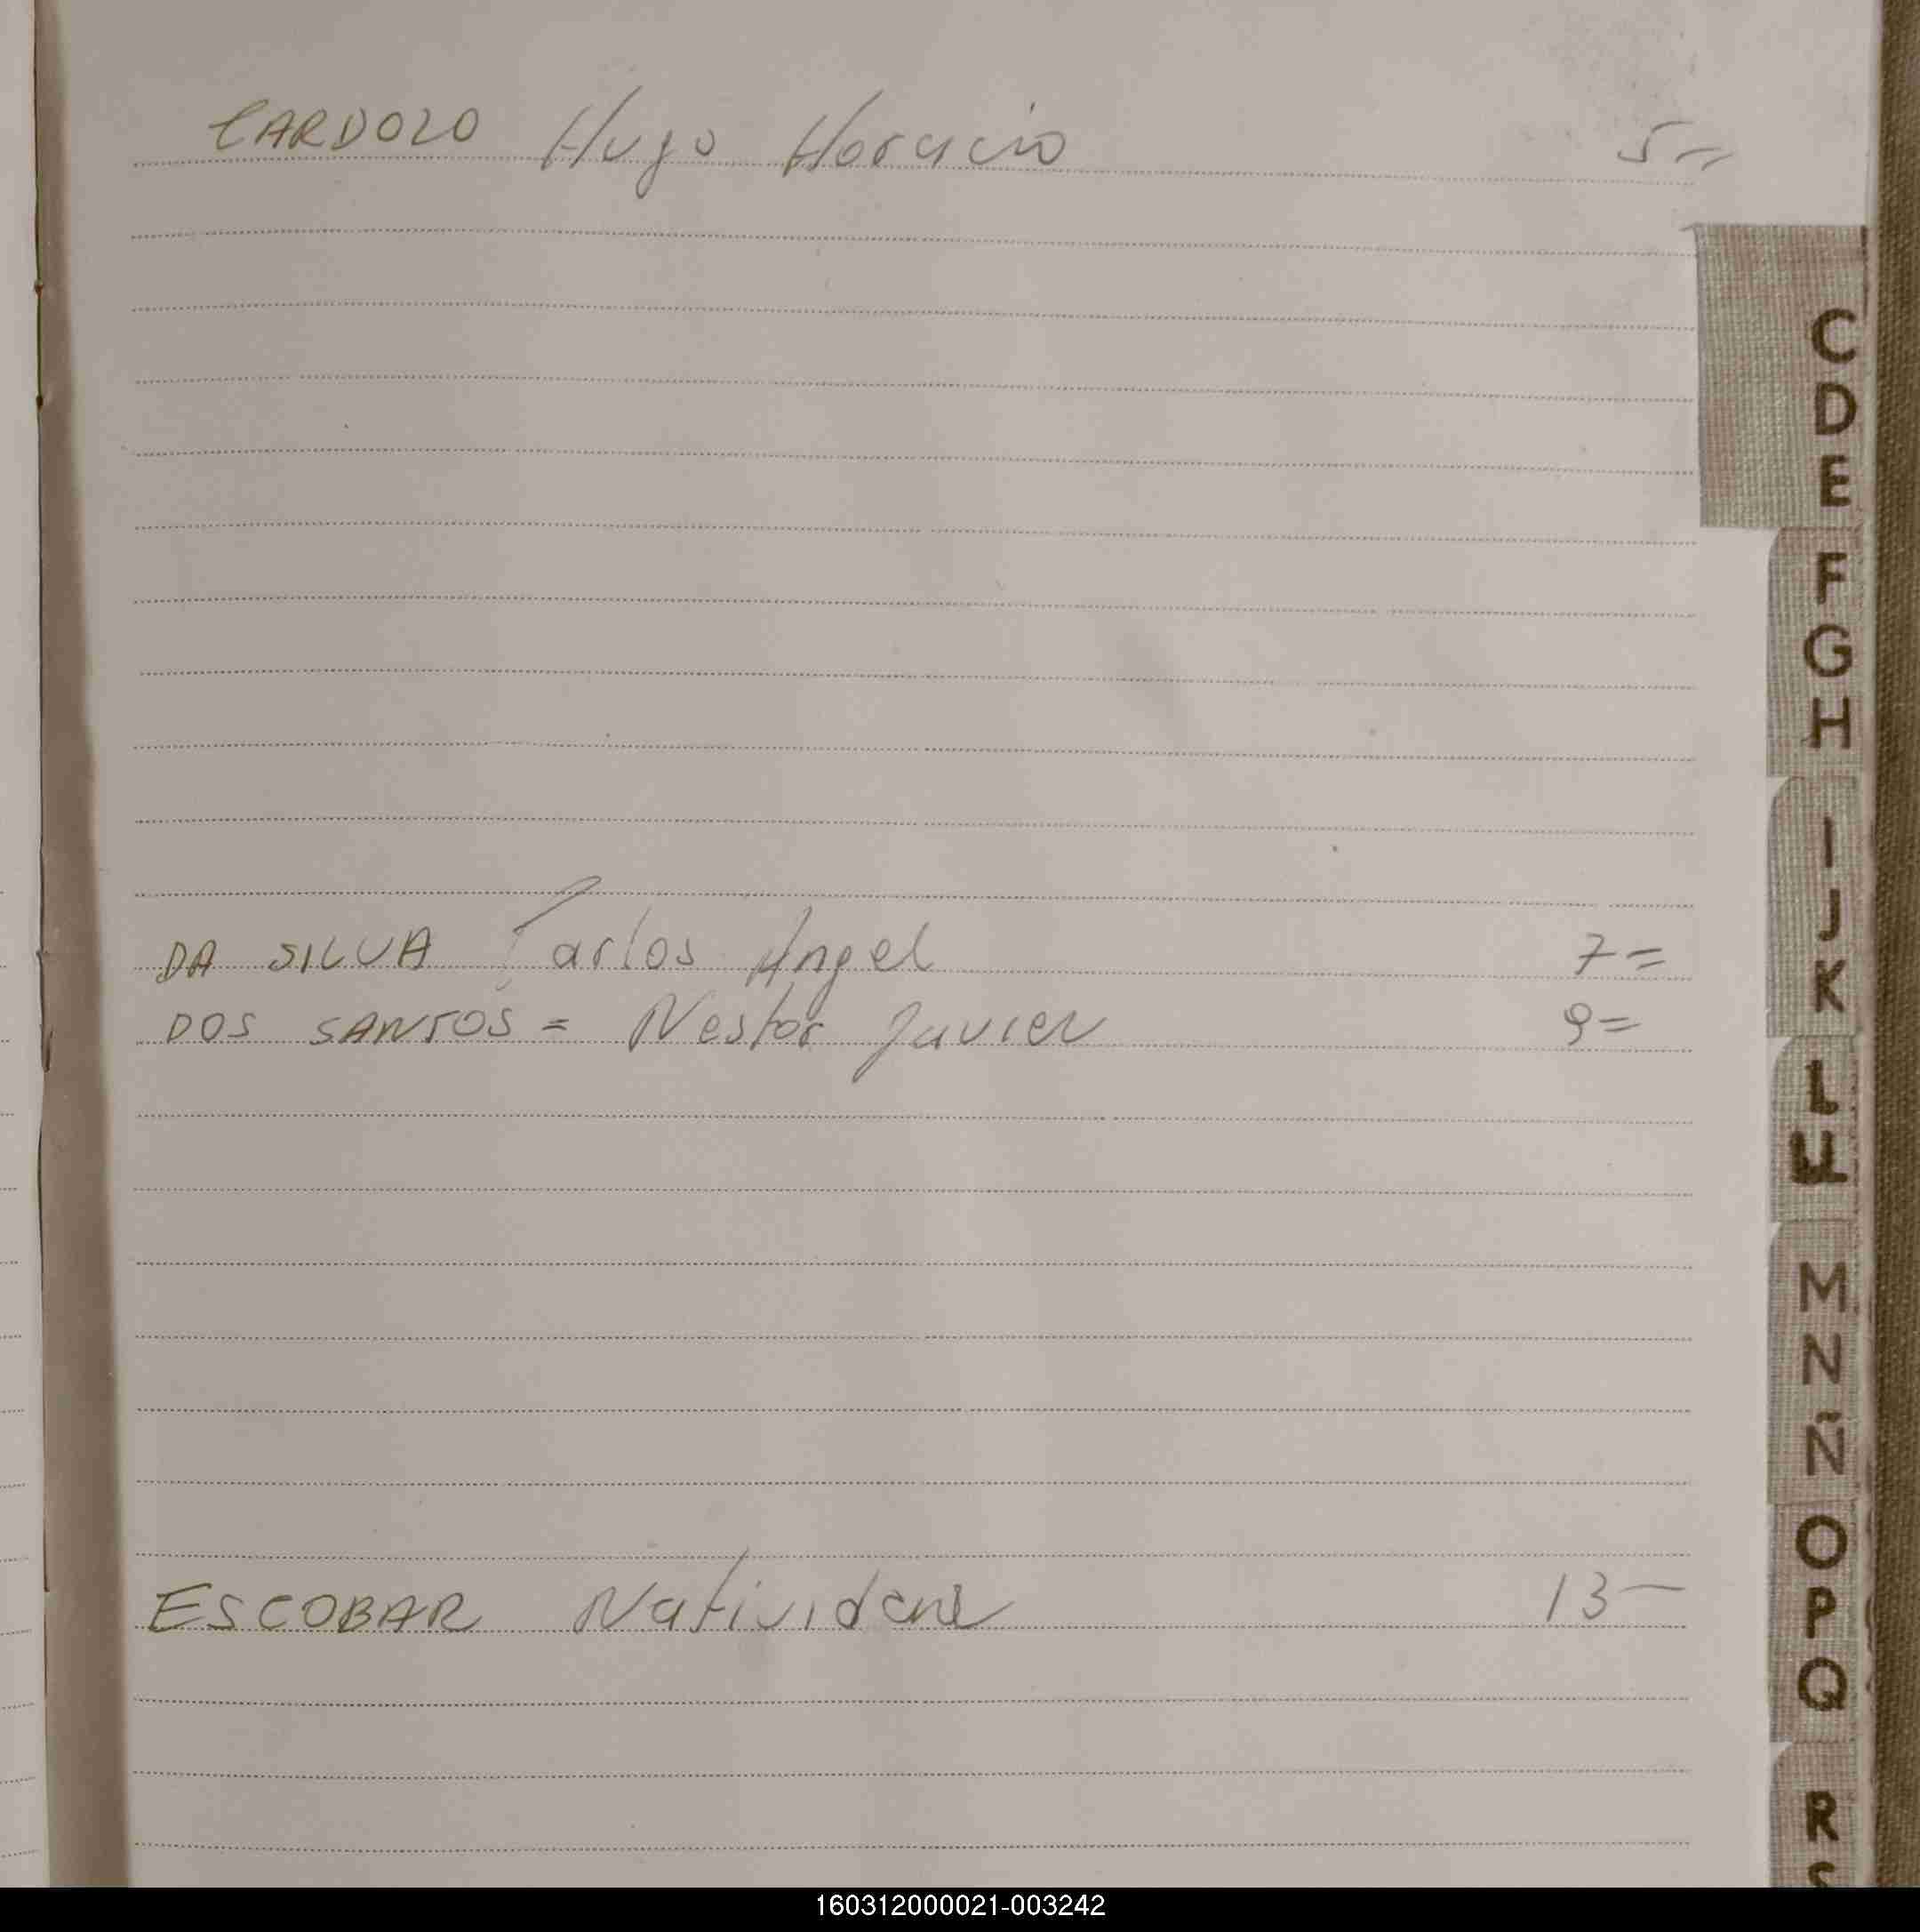 CARDOZO Hugo Horacio 5=
C
D
E
F
G
H
I
J
K
DA SILVA Carlos Angel 7=
DOS SANTOS = Nestor Javier 9=
L
M
N
Ñ
O
P
Q
ESCOBAR 13-
R
160312000021-003242